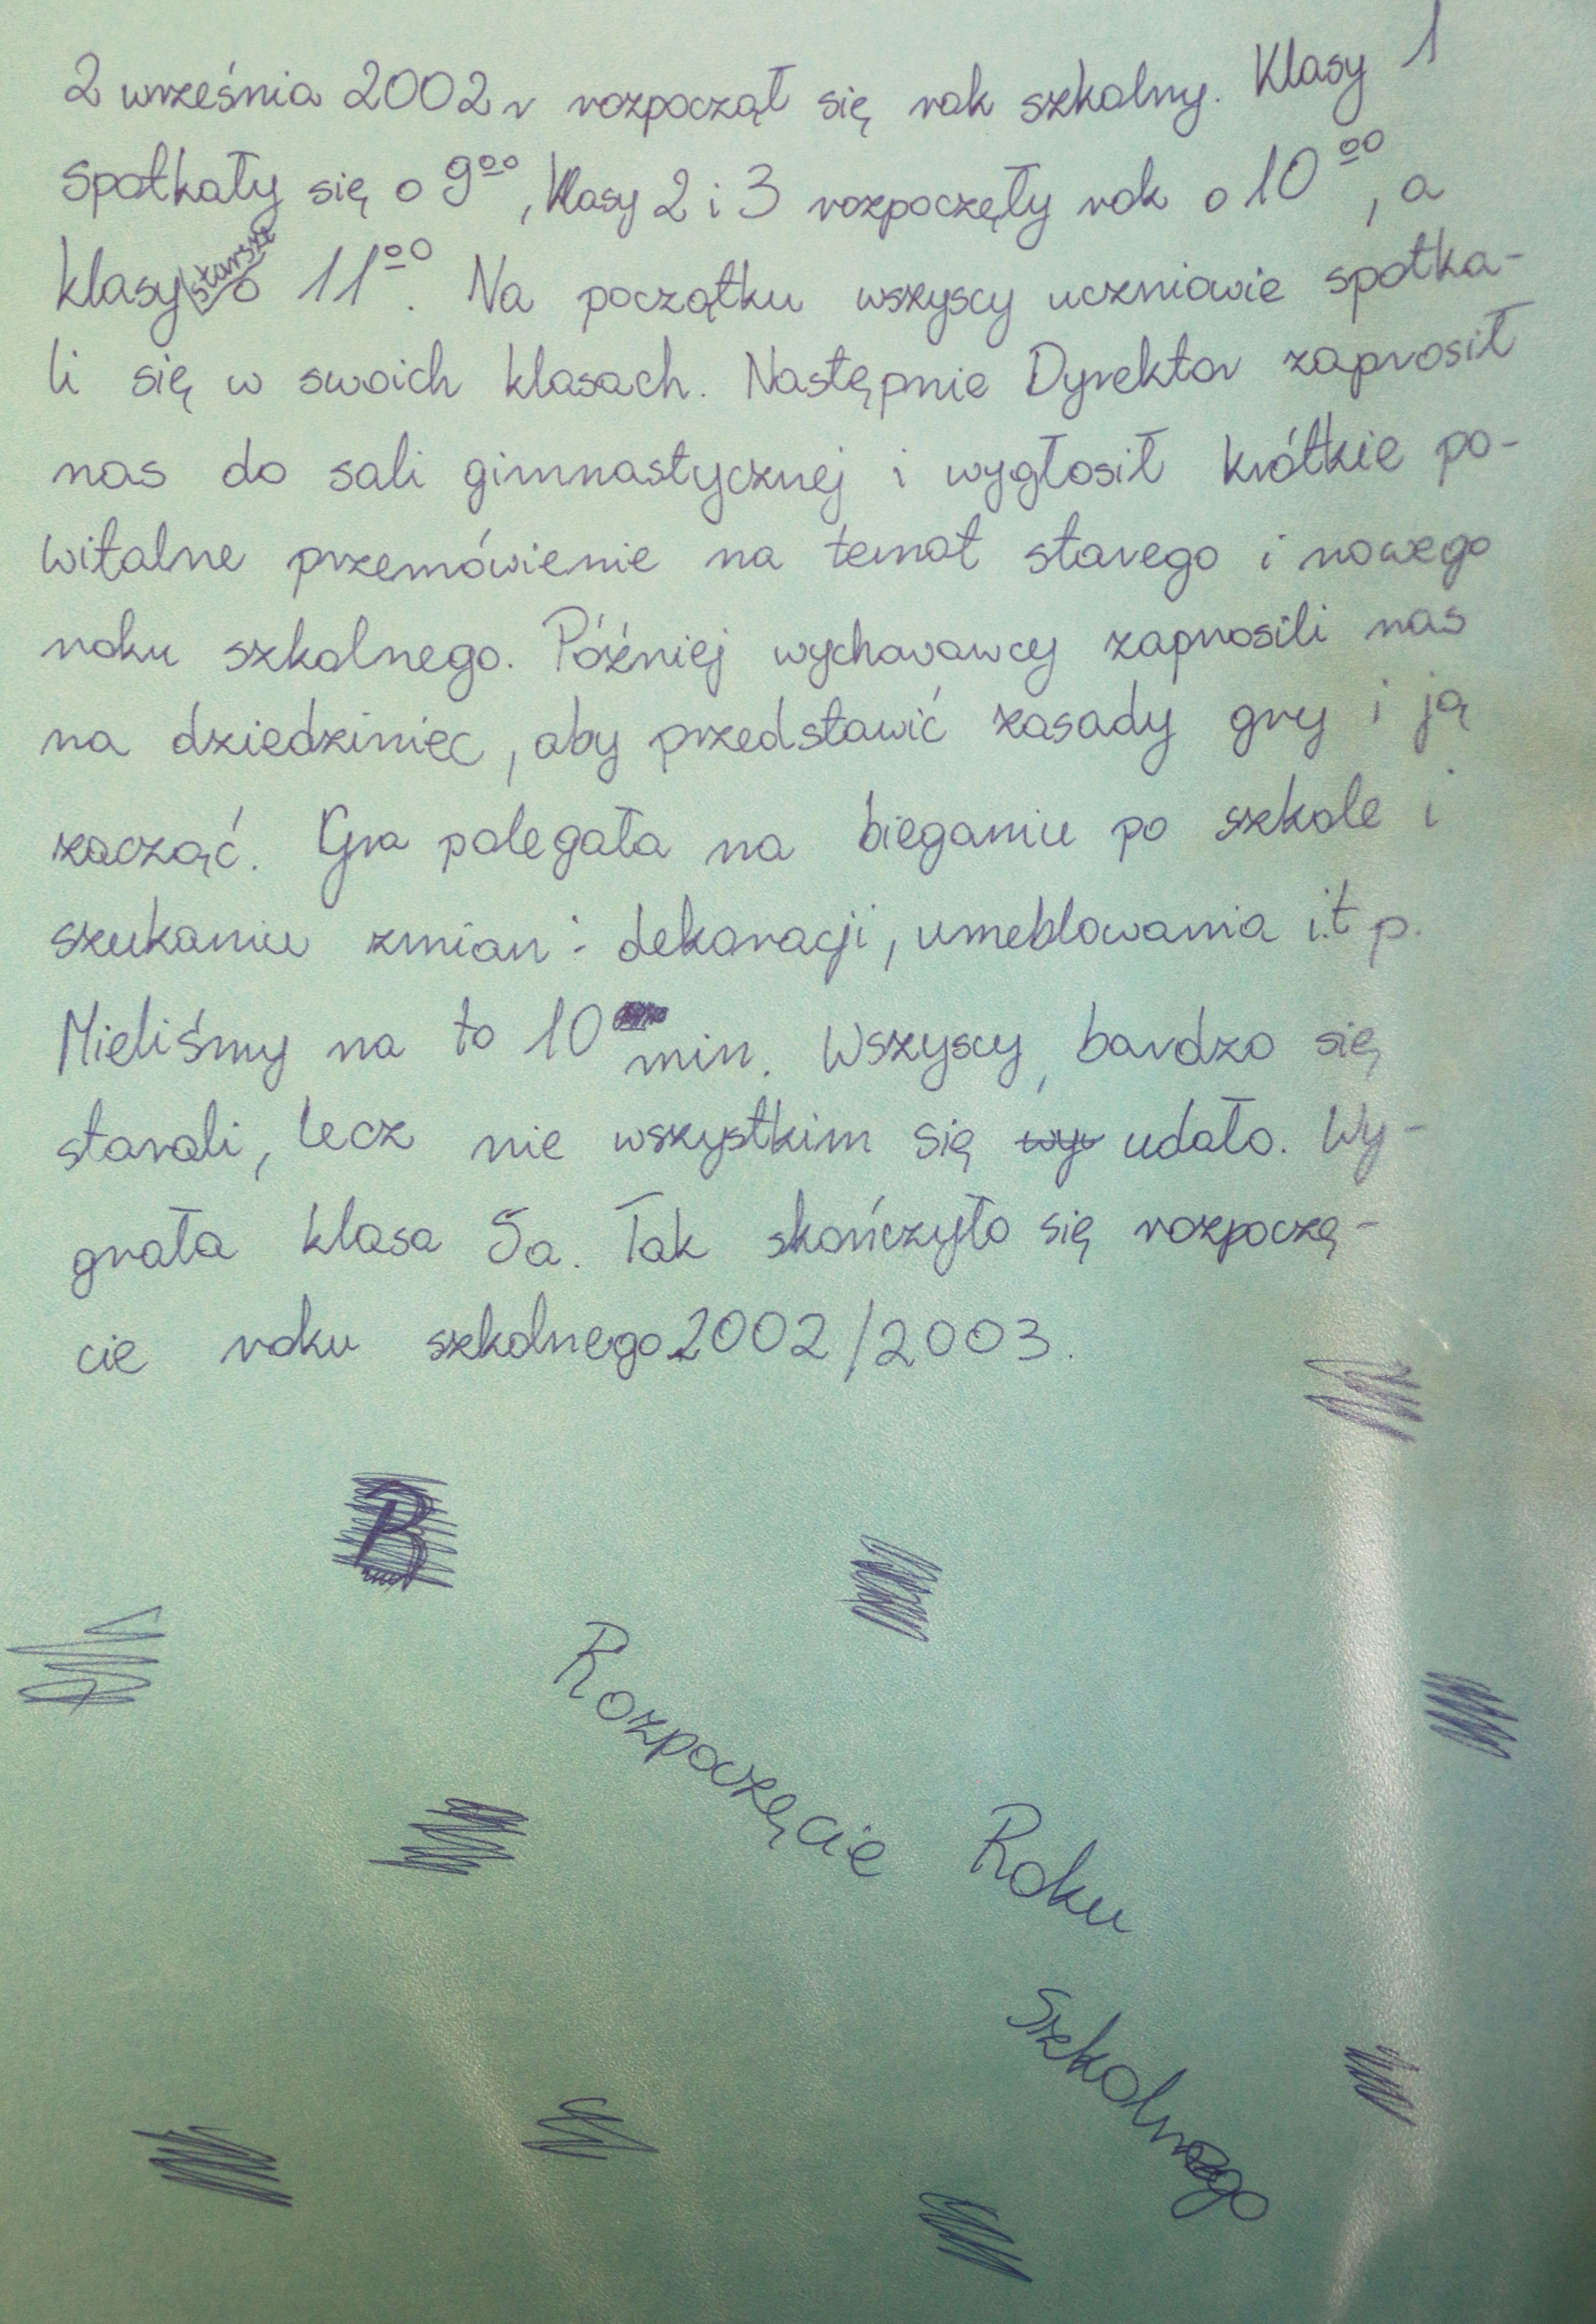 2 września 2002 r rozpoczął się rok szkolny. Klasy 1
spotkały się o 9⁰⁰, klasy 2 i 3 rozpoczęły rok o 10⁰⁰, a
klasy starsze o 11⁰⁰. Na początku wszyscy uczniowie spotka-
li się w swoich klasach. Następnie Dyrektor zaprosił
nas do sali gimnastycznej i wygłosił krótkie po-
witalne przemówienie na temat starego i nowego
roku szkolnego. Później wychowawcy zaprosili nas
na dziedziniec, aby przedstawić zasady gry i ją
zacząć. Gra polegała na bieganiu po szkole i
szukaniu zmian : dekoracji, umeblowania i.t p.
Mieliśmy na to 10 min. Wszyscy, bardzo się
starali, lecz nie wszystkim się wy udało. Wy-
grała klasa 5a. Tak skończyło się rozpoczę-
cie roku szkolnego 2002/2003.
B
Rozpoczęcie Roku
Szkolnego